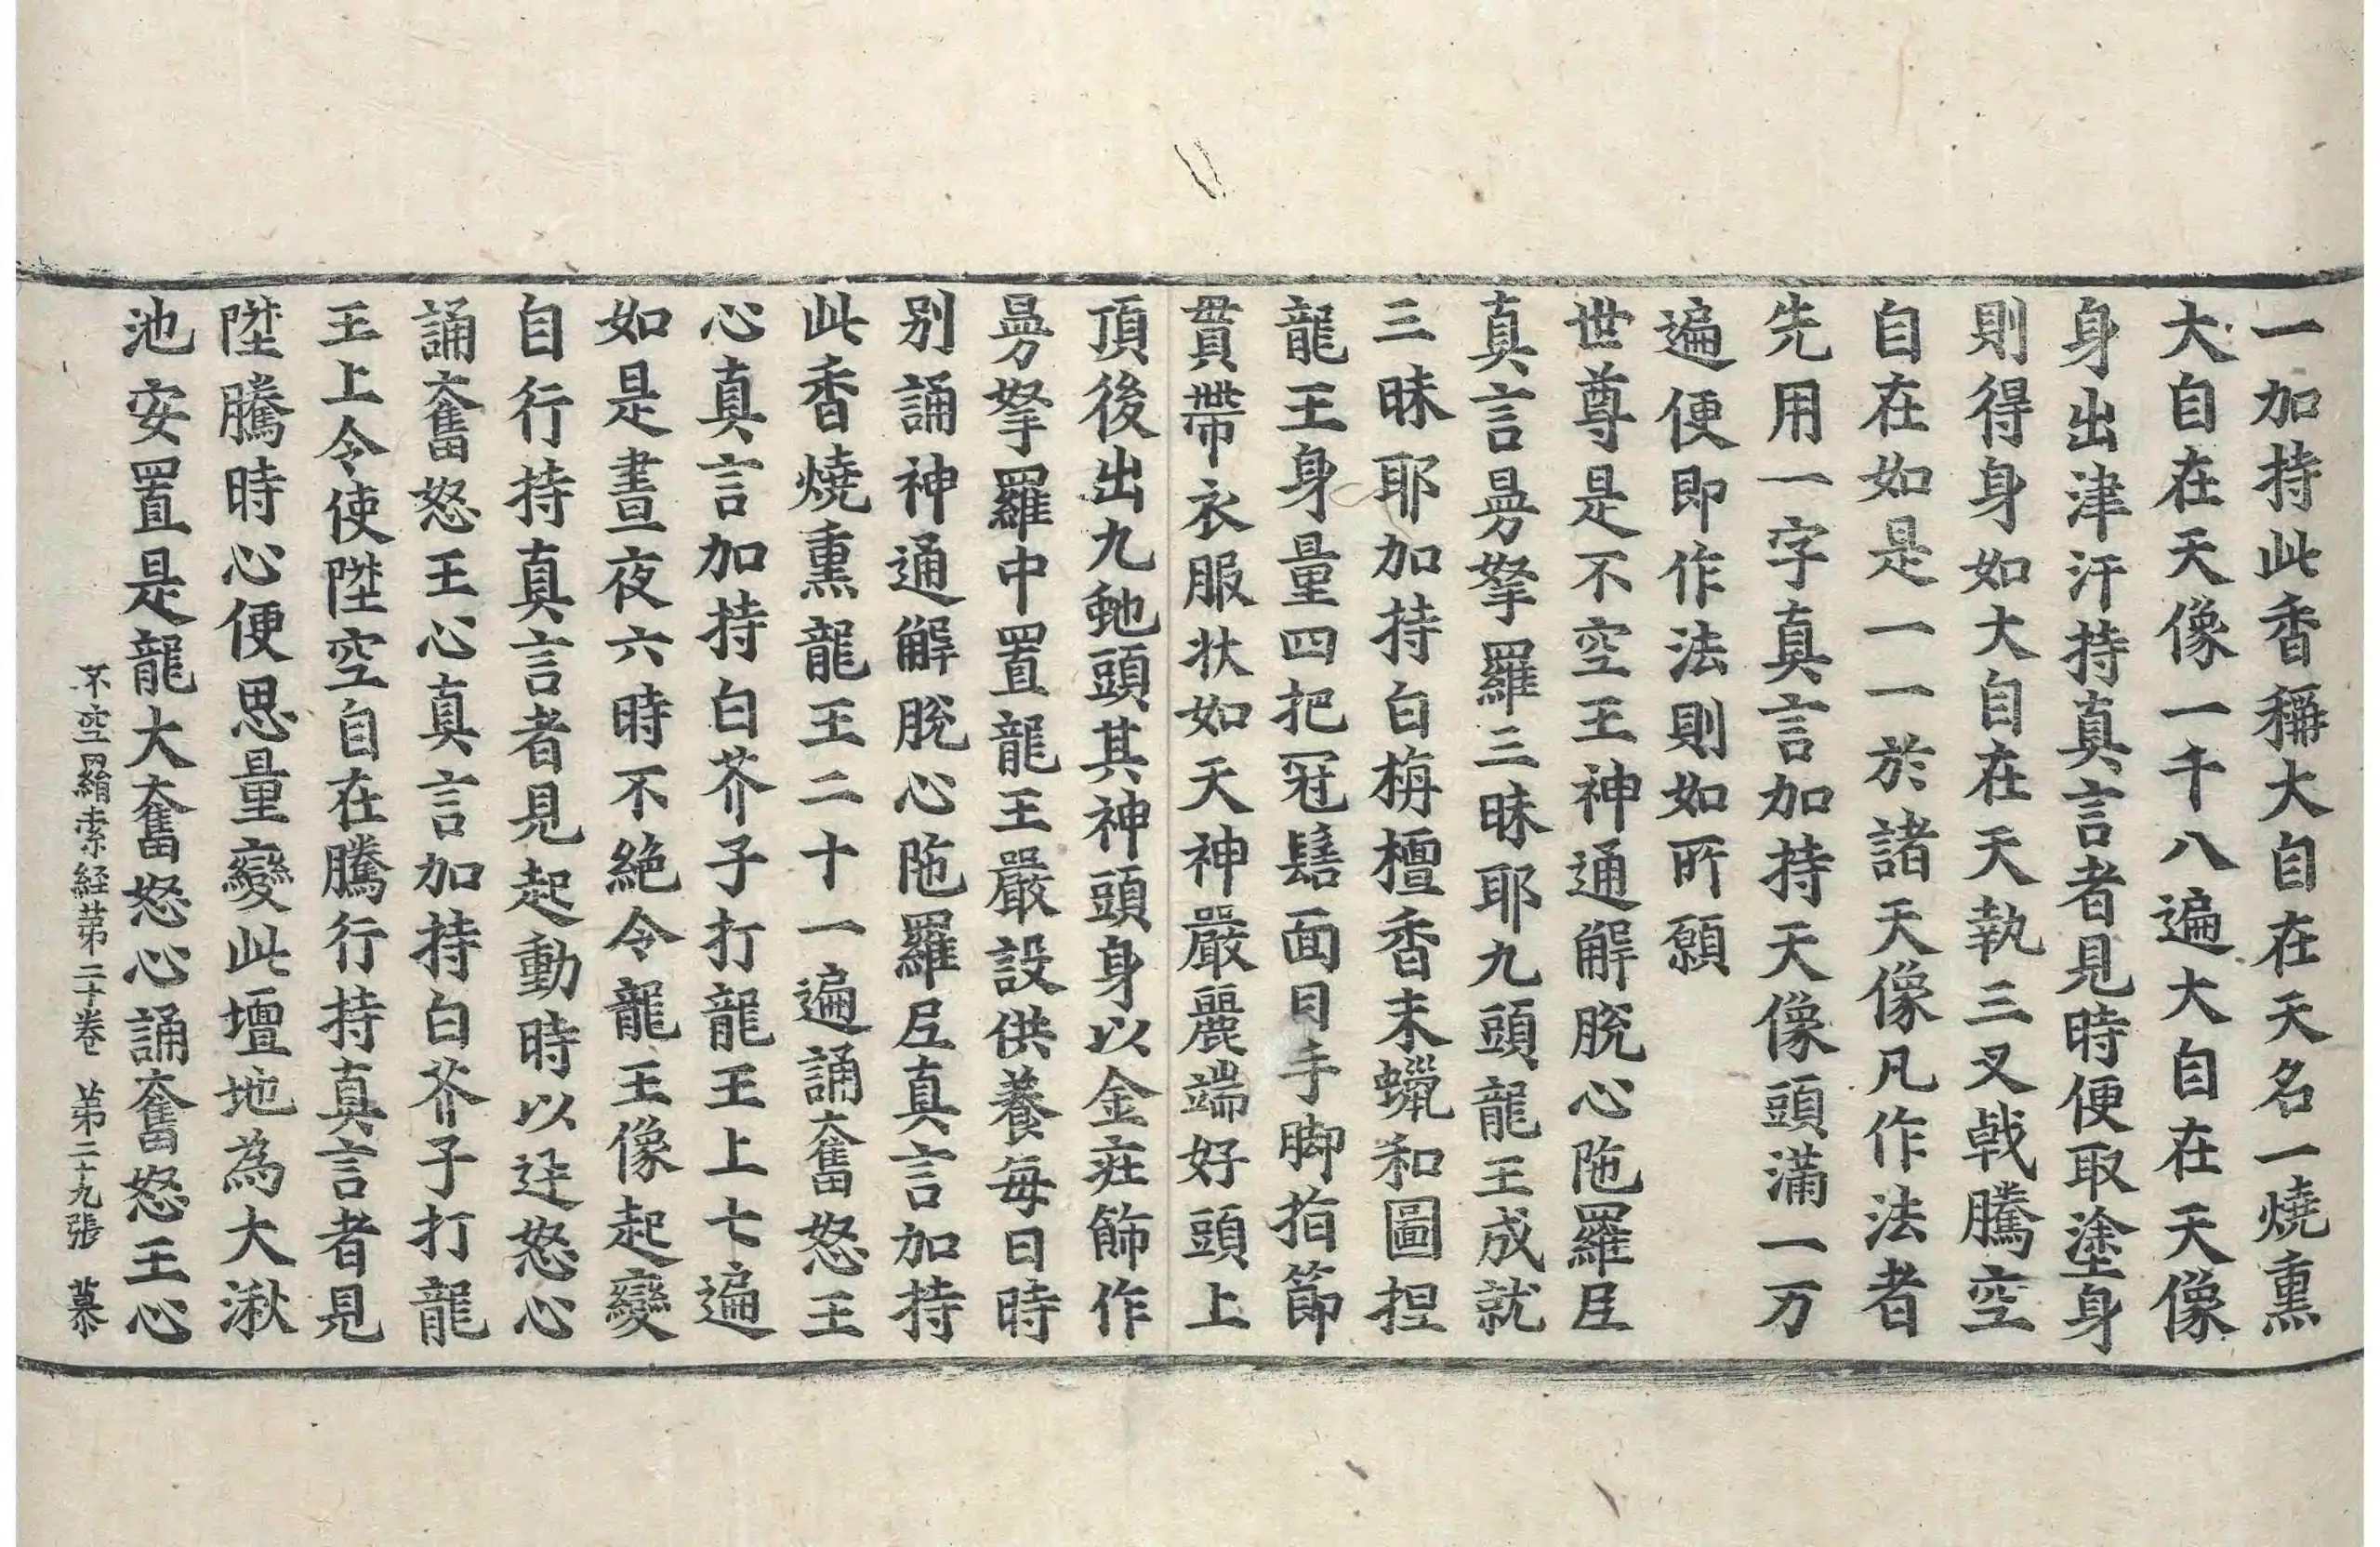 一加持此香稱大自在天名一燒熏
大自在天像一千八遍大自在天像
身出津汗持真言者見時便取塗身
則得身如大自在天執三叉戟騰空
自在如是一一於諸天像凡作法者
先用一字真言加持天像頭滿一万
遍便即作法則如所願
世尊是不空王神通解脫心陁羅尼
真言曼拏羅三昧耶九頭龍王成就
三昧耶加持白栴檀香末蠟和圖捏
龍王身量四把冠髻面目手脚指節
貫帶衣服状如天神嚴麗端好頭上
頂後出九虵頭其神頭身以金莊飾作
曼拏羅中置龍王嚴設供養每日時
別誦神通解脫心陁羅尼真言加持
此香燒熏龍王二十一遍誦奮怒王
心真言加持白芥子打龍王上七遍
如是晝夜六時不絕令龍王像起變
自行持真言者見起動時以逆怒心
誦奮怒王心真言加持白芥子打龍
王上令使陞空自在騰行持真言者見
陞騰時心便思量變此壇地為大湫
池安置是龍大奮怒心誦奮怒王心
不空羂索経苐二十卷 苐二十九張 慕